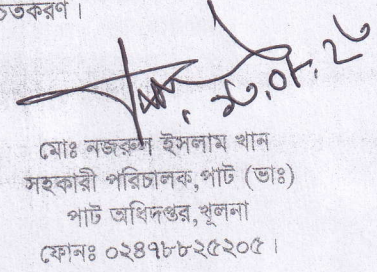 চতকরণ।
মোঃ নজরুল ইসলাম খান
সহকারী পরিচালক,পাট (ভাঃ)
পাট অধিদপ্তর,খুলনা
ফোনঃ ০২৪৭৮৮২৫২০৫।